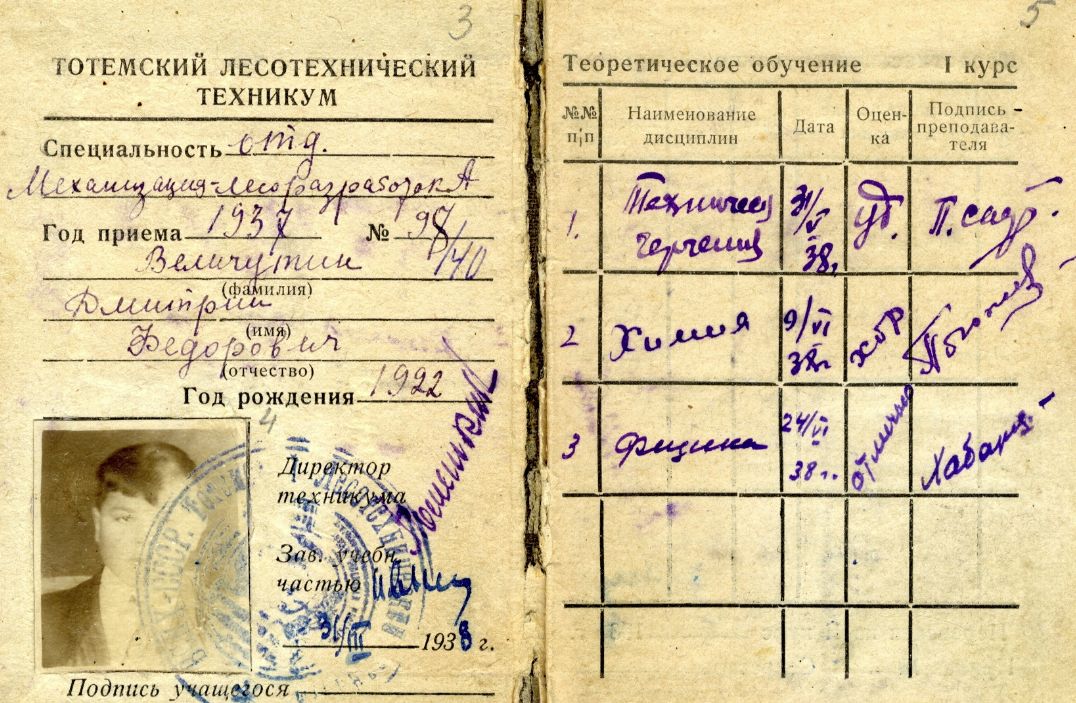 3
ТОТЕМСКИЙ ЛЕСОТЕХНИЧЕСКИЙ
ТЕХНИКУМ
Специальность отд.
Механизация лесоразработок
Год приема 1937 № 98/40
Величутин
(фамилия)
Дмитрий
(имя)
Федорович
(отчество)
Год рождения 1922
4
Директор
техникума
Зав. учебн.
частью
31/III 1938 г.
Подпись учащегося
5
Теоретическое обучение I курс
№№ п/п Наименование дисциплин Дата Оцен-ка Подпись преподава-теля
1. Техническ черчения 31/V 38г. уд. П. сад
2 Химия 9/VI 38г. хор
3 Физика 24/VI 38г. отлично